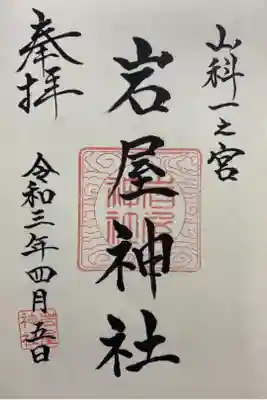 山科一之宮
岩屋神社
奉拝
令和三年四月五日